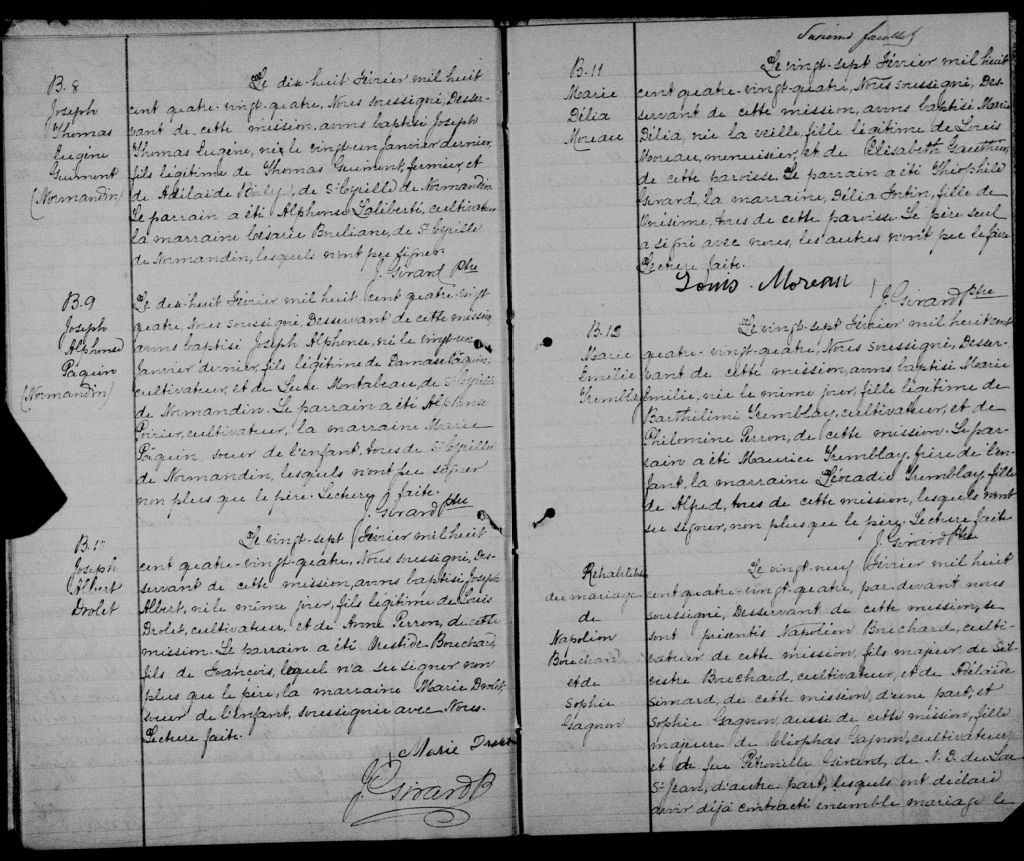 B. 8
Joseph
Thomas
Eugène
Guimont
(Normandin)
Le dix-huit Février mil huit
cent quatre-vingt-quatre, Nous soussigné, Desser-
vant de cette mission, avons baptisé Joseph
Thomas Eugène, né le vingt-un janvier dernier,
fils légitime de Thomas Guimont, fermier, et
de Adélaïde, de St Cyrille de Normandin
Le parrain a été Alphonse Laliberté, cultivateur
la marraine Césarie Bouliane, de St Cyrille
de Normandin, lesquels n'ont pu signer.
J. Girard Ptre
B. 9
Joseph
Alphonse
Pâquin
(Normandin)
Le dix-huit Février mil huit cent quatre-vingt
quatre, Nous soussigné, Desservant de cette mission
avons baptisé Joseph Alphonse, né le vingt-un
Janvier dernier, fils légitime de Damase Pâquin,
cultivateur, et de Montabeau, de St Cyrille
de Normandin. Le parrain a été Alphonse
Poirier, cultivateur, la marraine Marie
Pâquin, soeur de l'enfant, tous de St Cyrille
de Normandin, lesquels n'ont su signer
non plus que le père. Lecture faite.
J. Girard Ptre
B. 10
Joseph
Albert
Drolet
Le vingt-sept Février mil huit
cent quatre-vingt-quatre, Nous soussigné, Des-
servant de cette mission, avons baptisé Joseph
Albert, né le même jour, fils légitime de Louis
Drolet, cultivateur, et de Anne Perron, de cette
mission. Le parrain a été Aristide Bouchard,
fils de François, lequel n'a su signer non
plus que le père, la marraine Marie Drolet,
soeur de l'enfant, soussignée avec Nous.
Lecture faite.
Marie Drolet
J. Girard P
feuillet
B. 11
Marie
Délia
Moreau
Le vingt-sept Février mil huit
cent quatre-vingt-quatre, Nous soussigné, Des-
servant de cette mission, avons baptisé Marie
Délia, née la veille, fille légitime de Louis
Moreau, menuisier, et de Elisabeth Gauthier,
de cette paroisse. Le parrain a été Théophile
Girard, la marraine, Délia Fortin, fille de
Onésime, tous de cette paroisse. Le père seul
a signé avec nous, les autres n'ont pu le faire
Lecture faite.
Louis Moreau
J. Girard Ptre
B. 12
Marie
Emélie
Tremblay
Le vingt-sept Février mil huit cent
quatre-vingt-quatre, Nous soussigné, Desser-
vant de cette mission, avons baptisé Marie
Emélie, née le même jour, fille légitime de
Barthélémi Tremblay, cultivateur, et de
Philomène Perron, de cette mission. Le par-
rain a été Maurice Tremblay, frère de l'en-
fant, la marraine Léocadie Tremblay, fille
de Alfred, tous de cette mission, lesquels n'ont
su signer, non plus que le père. Lecture faite
J. Girard Ptre
Réhabilitation
du mariage
de
Napoléon
Bouchard
et de
Sophie
Gagnon
Le vingt-neuf Février mil huit
cent quatre-vingt-quatre, par-devant nous
soussigné, Desservant de cette mission, se
sont présentés Napoléon Bouchard, culti-
vateur de cette mission, fils majeur de Sil-
vestre Bouchard, cultivateur, et de Adélaïde
Simard, de cette mission, d'une part; et
Sophie Gagnon, aussi de cette mission, fille
majeure de Cléophas Gagnon, cultivateur
et de feu Pétronille Girard, de N. D. du Lac
St Jean, d'autre part, lesquels ont déclaré
avoir déjà contracté ensemble mariage le